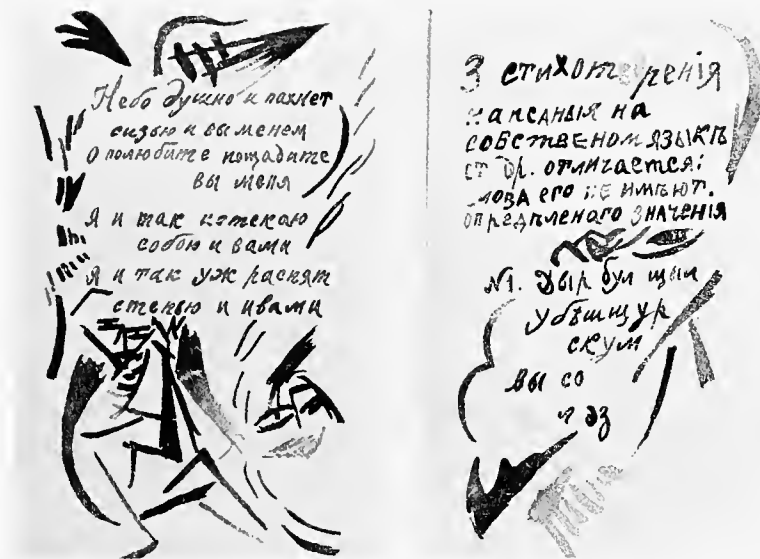 Небо душно и пахнет
сизью и выменем
О полюбите пощадите
вы меня
Я и так истекаю
собою и вами
Я и так уж распят
степью и ивами
3 стихотворенія
напсаныя на
собственом языкѣ
от др. отличается:
слова его не имѣют.
опредѣленого значенія
№1. Дыр бул щыл
убѣшщур
скум
вы со
л эз